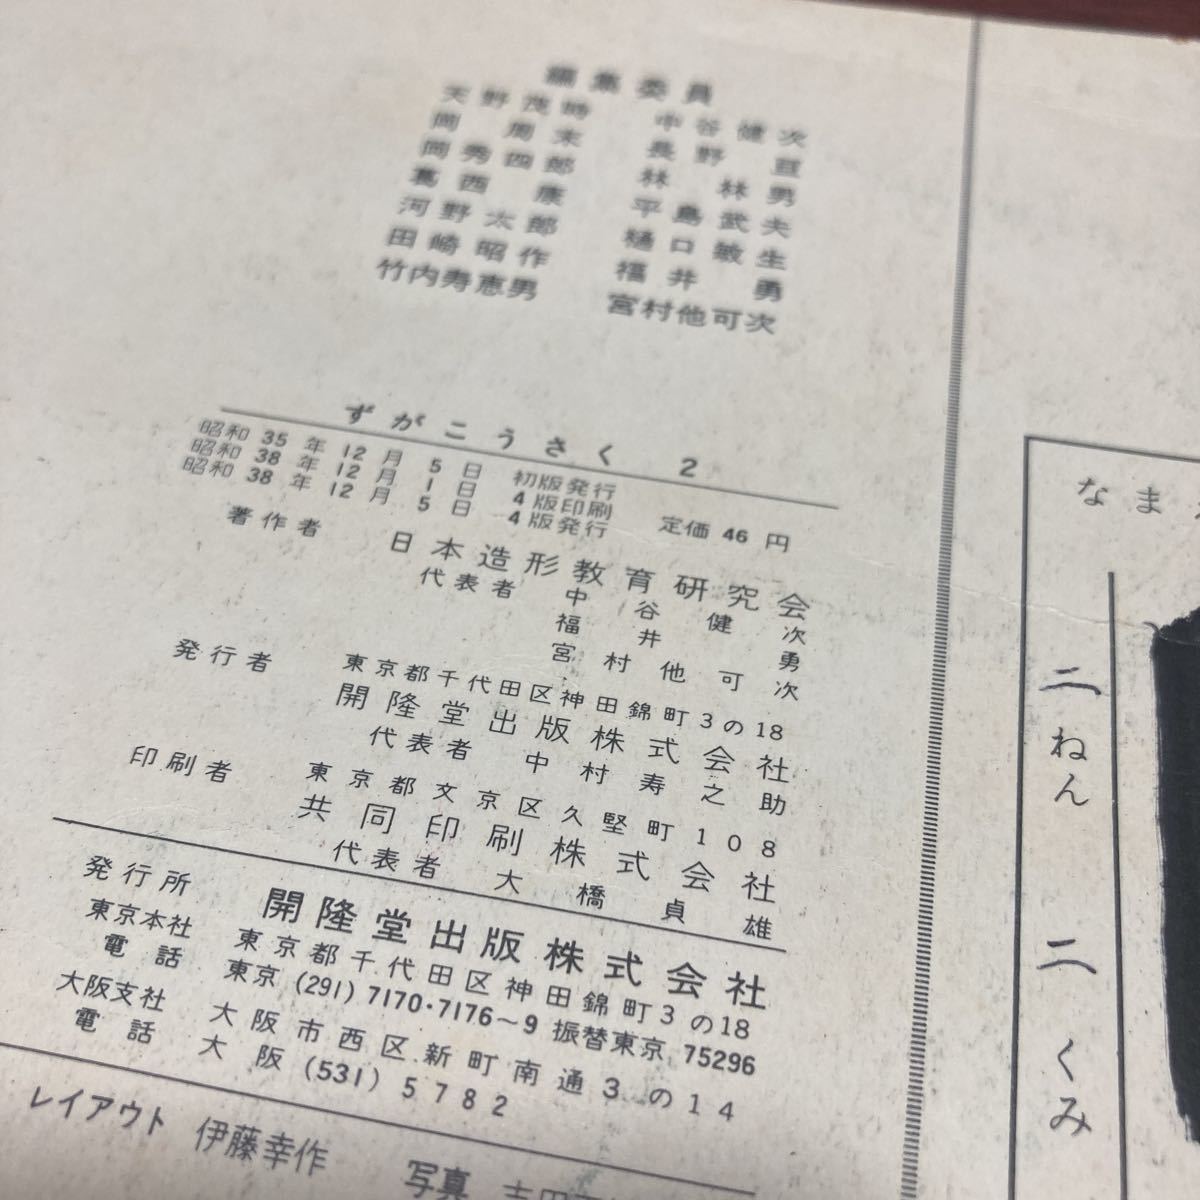 編集委員
天野茂時 中谷健次
岡周末 長野亘
岡秀四郎 林林男
葛西康 平島武夫
河野太郎 樋口敏生
田崎昭作 福井勇
竹内寿恵男 宮村他可次
ずがこうさく 2
昭和 35 年 12 月 5 日 初版発行
昭和 38 年 12 月 1 日 4 版印刷
昭和 38 年 12 月 5 日 4 版発行 定価 46 円
著作者 日本造形教育研究会
代表者 中谷健次
福井勇
宮村他可次
発行者 東京都千代田区神田錦町3の18
開隆堂出版株式会社
代表者 中村寿之助
印刷者 東京都文京区久堅町108
共同印刷株式会社
代表者 大橋貞雄
発行所 開隆堂出版株式会社
東京本社 東京都千代田区神田錦町3の18
電話 東京 (291) 7170・7176～9 振替東京 75296
大阪支社 大阪市西区新町南通3の14
電話 大阪 (531) 5782
レイアウト 伊藤幸作 写真
なま
二ねん 二くみ